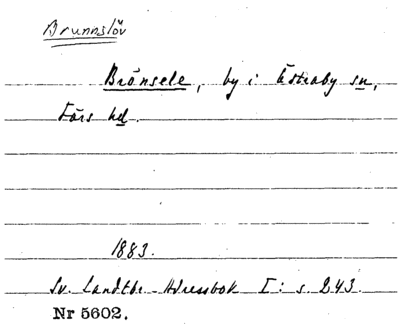 Brunnslöv
Brönsele, by i Östraby sn,
Färs hd.
1883.
Sv. Landtbr. Adressbok I: s. 243.
Nr 5602.